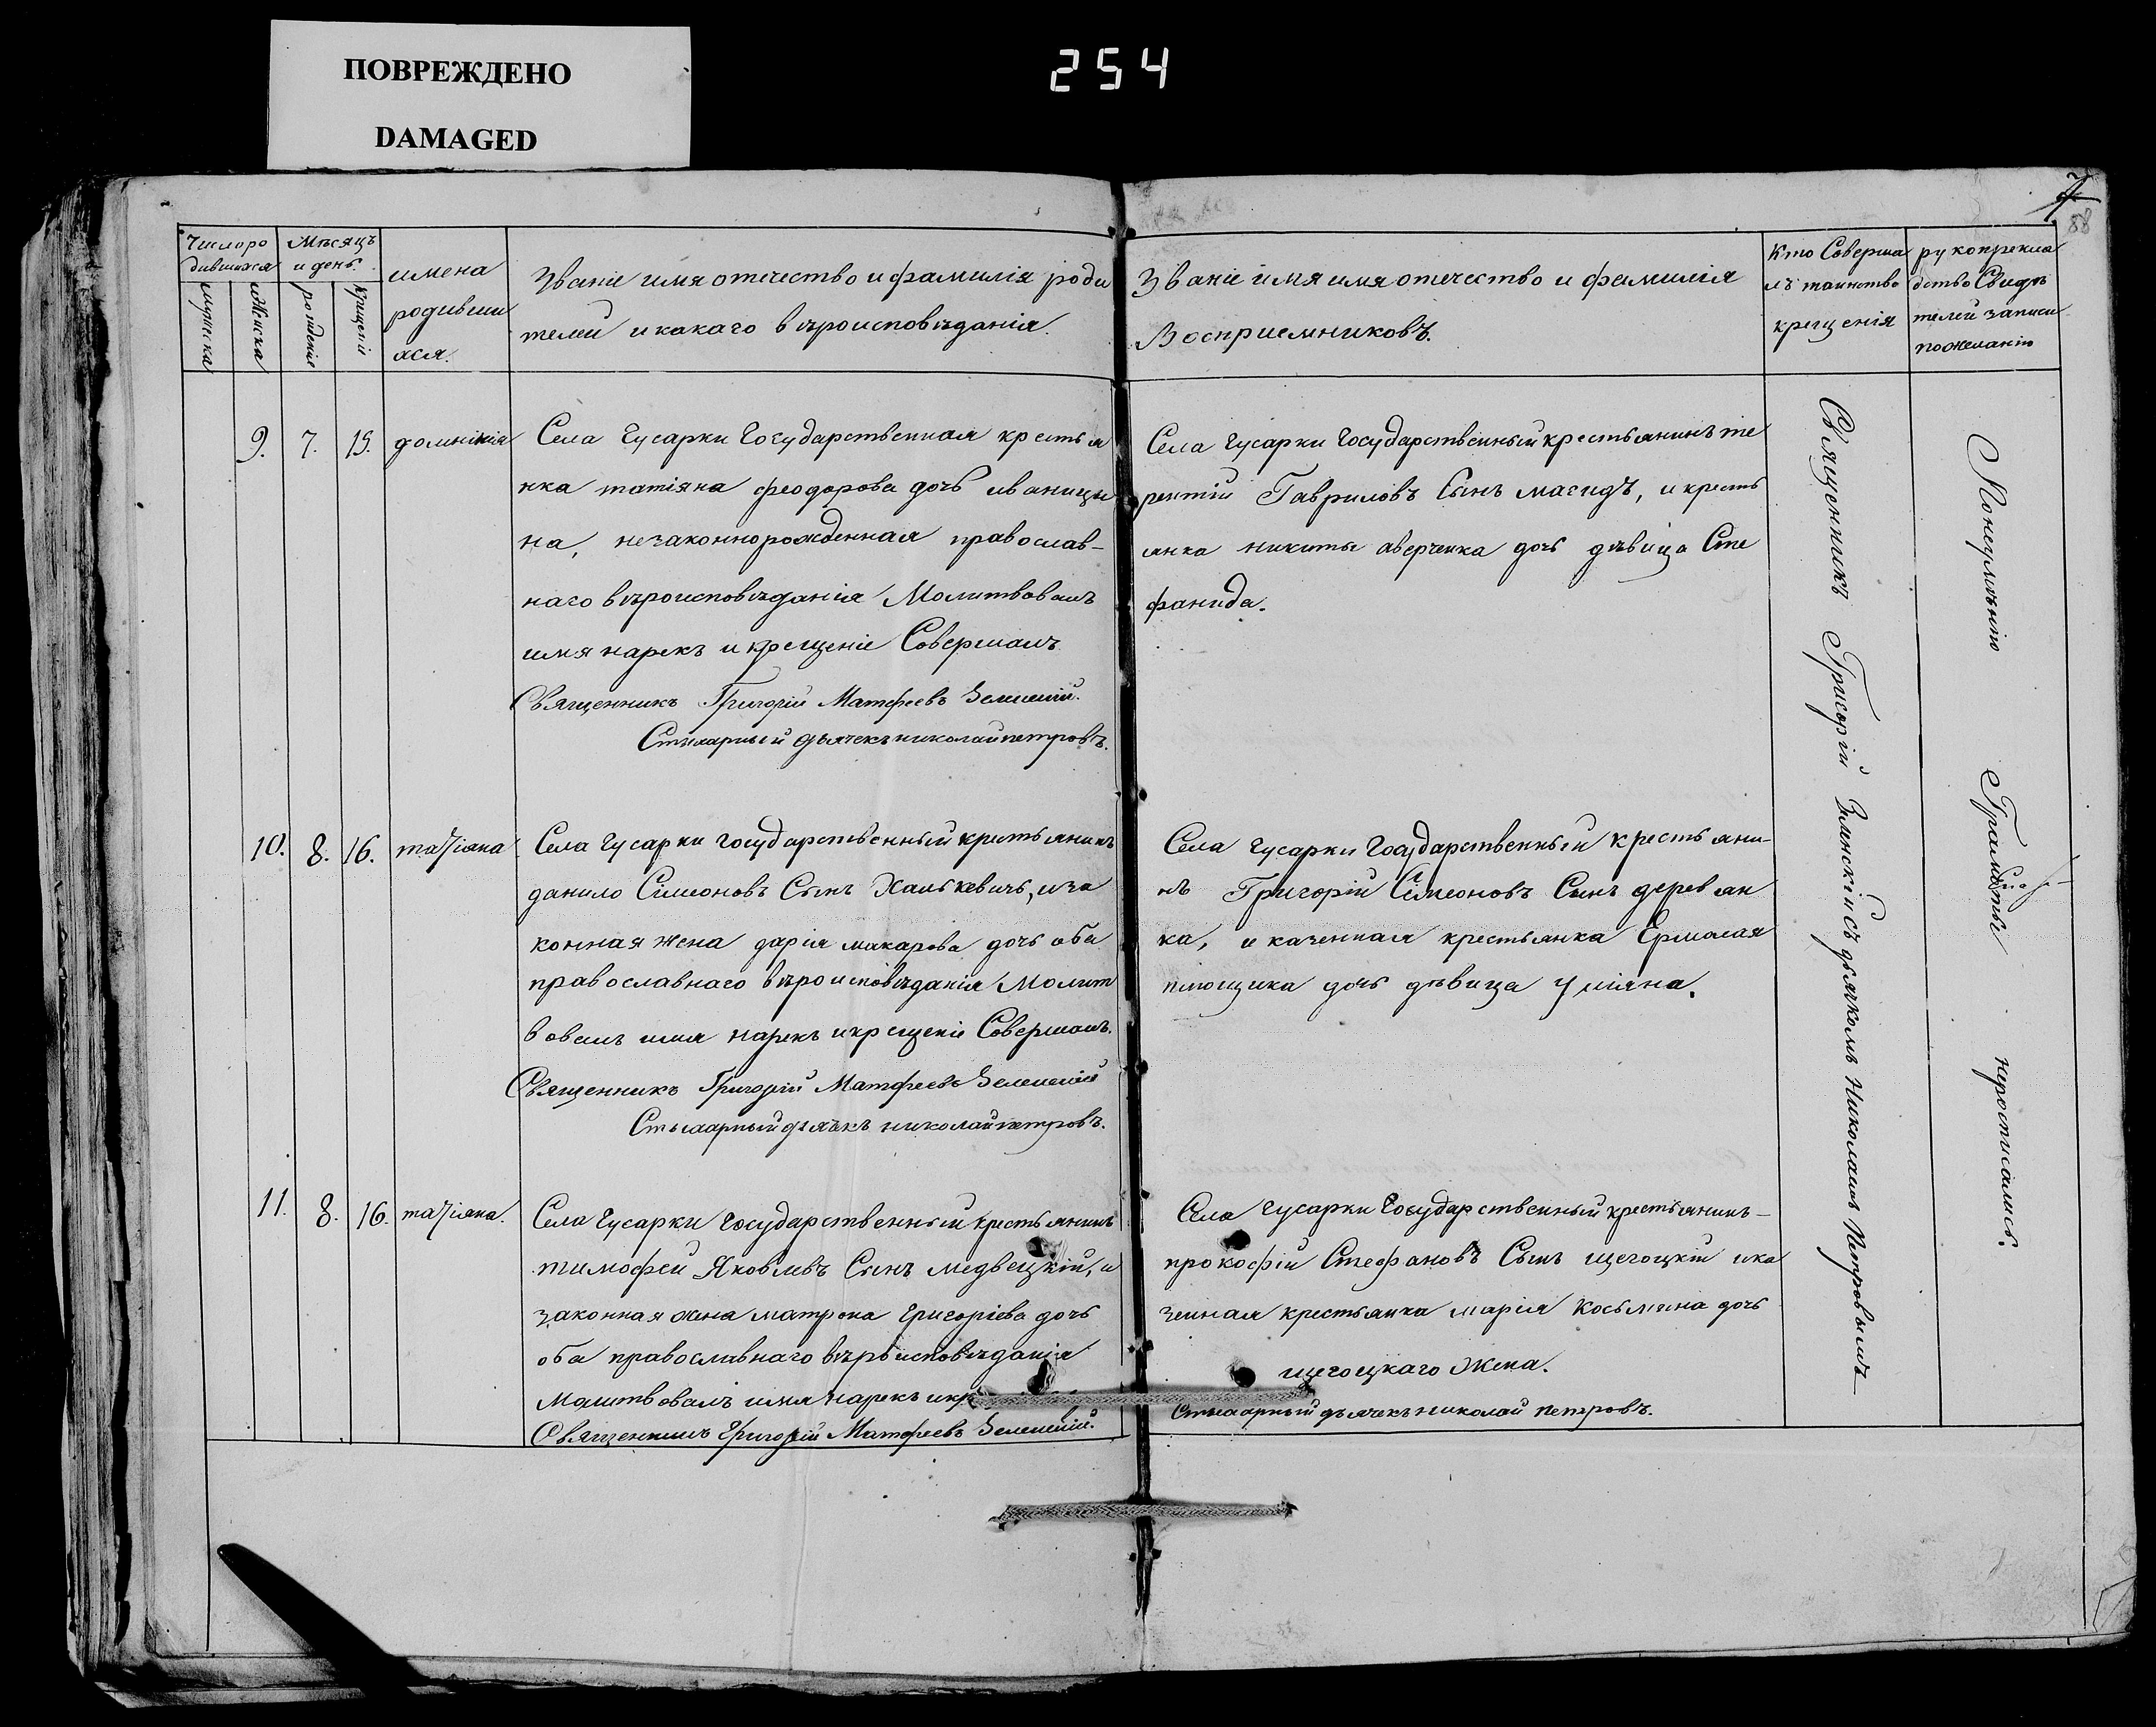 ПОВРЕЖДЕНО
DAMAGED
254
7
88
Число ро
дившихся
Мѣсяцъ
и день.
мужска
Женска
рожденія
крещенія
имена
родивши
хся.
Званіе имя отечество и фамилія роди
телей и какаго вѣроисповѣданія.
Званіе имя имя отечество и фамилія
Восприемниковъ.
Кто Соверша
лъ таинство
крещенія
рукоприкла
дство Свидѣ
телей записи
по желанію
9. 7. 15. домникія
Села Гусарки Государственная крестья
нка татіяна феодорова дочь иваницы
на, незаконнорожденная православ-
наго вѣроисповѣданія Молитвовалъ
имя нарекъ и крещеніе Совершалъ
Священникъ Григорій Матфеевъ Зеленскій.
Стихарный дьячекъ николай петровъ.
Села Гусарки Государственный крестьянинъ те
рентій Гавриловъ Сынъ магидъ, и кресть
янка никиты аверченка дочь дѣвица Сте
фанида.
10. 8. 16. татіяна
Села Гусарки государственный крестьянинъ
данило Симеоновъ Сынъ Халькевичъ, и за
конная жена дарія макарова дочь оба
православнаго вѣроисповѣданія Молит
вовалъ имя нарекъ и крещеніе Совершалъ.
Священникъ Григорій Матфеевъ Зеленскій
Стихарный дьячекъ николай петровъ.
Села Гусарки Государственный крестьяни-
нъ Григорій Симеоновъ Сынъ деревян
ка, и казенная крестьянка Ермолая
плющика дочь дѣвица Уліяна.
11. 8. 16. татіяна.
Села Гусарки Государственный крестьянинъ
тимофей Яковлевъ Сынъ медвецкій, и
законная жена матрона Григоріева дочь
оба православнаго вѣроисповѣданія
Молитвовалъ имя нарекъ и кр
Священникъ Григорій Матфеевъ Зеленскій.
Села Гусарки Государственный крестьянинъ-
прокофій Стефановъ Сынъ щегоцкій и ка
зенная крестьянка марія Косьмина дочь
щегоцкаго Жена.
Стихарный дьячекъ николай петровъ.
Священникъ Григорій Зеленскій съ дьячкомъ Николаемъ Петровымъ
По неумѣнію Грамоты неросписались.